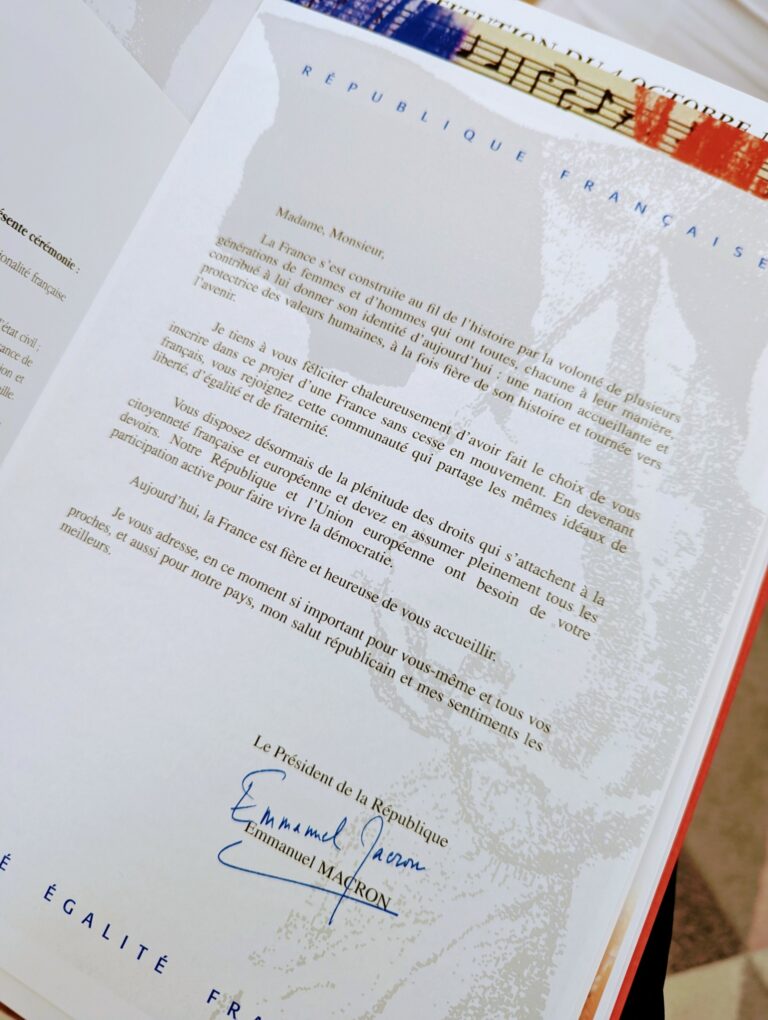 TUTION DU 4 OCTOBRE 1
RÉPUBLIQUE FRANÇAISE
ésente cérémonie :
ionalité française
l'état civil ;
ance de
on et
ille.
Madame, Monsieur,
La France s'est construite au fil de l'histoire par la volonté de plusieurs
générations de femmes et d'hommes qui ont toutes, chacune à leur manière,
contribué à lui donner son identité d'aujourd'hui : une nation accueillante et
protectrice des valeurs humaines, à la fois fière de son histoire et tournée vers
l'avenir.
Je tiens à vous féliciter chaleureusement d'avoir fait le choix de vous
inscrire dans ce projet d'une France sans cesse en mouvement. En devenant
français, vous rejoignez cette communauté qui partage les mêmes idéaux de
liberté, d'égalité et de fraternité.
Vous disposez désormais de la plénitude des droits qui s'attachent à la
citoyenneté française et européenne et devez en assumer pleinement tous les
devoirs. Notre République et l'Union européenne ont besoin de votre
participation active pour faire vivre la démocratie.
Aujourd'hui, la France est fière et heureuse de vous accueillir.
Je vous adresse, en ce moment si important pour vous-même et tous vos
proches, et aussi pour notre pays, mon salut républicain et mes sentiments les
meilleurs.
Le Président de la République
Emmanuel Macron
Emmanuel MACRON
É ÉGALITÉ FRA